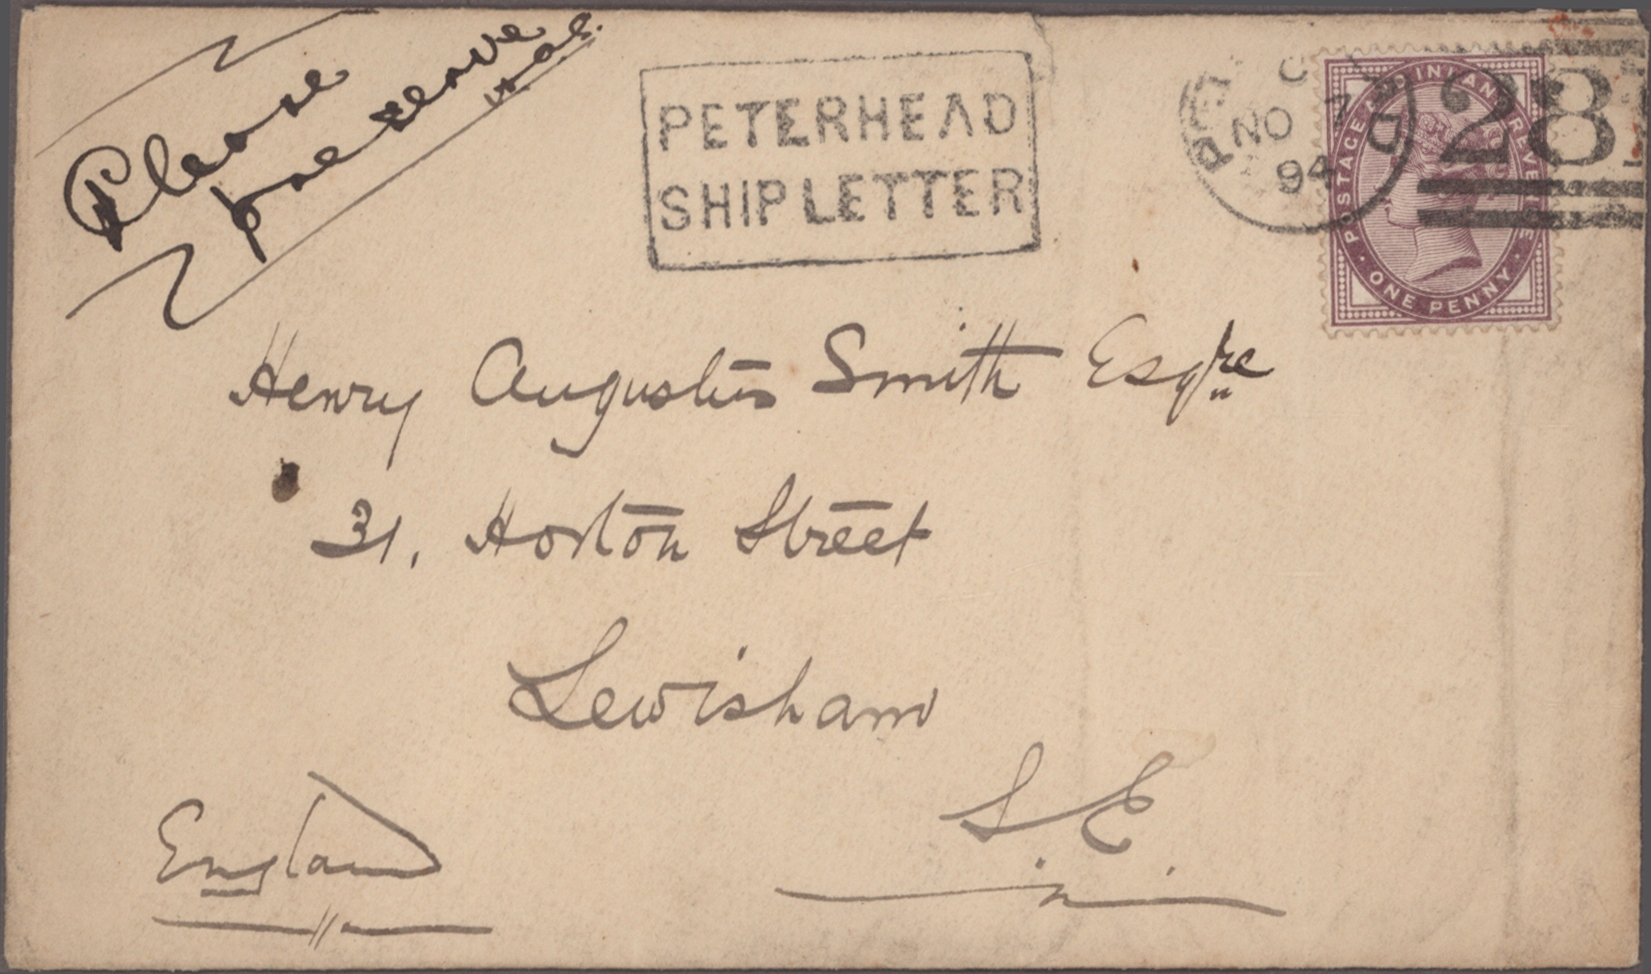 Please
preserve
this.
PETERHEAD
SHIP LETTER
C
NO 7
94
281
POSTAGE AND INLAND REVENUE
ONE PENNY
Henry Augustus Smith Esqre
31, Horton Street
Lewisham
S E
England